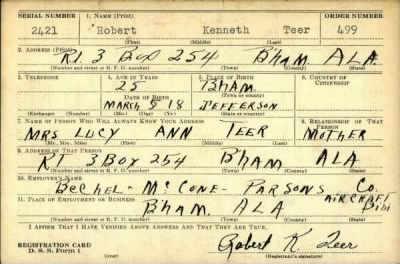 SERIAL NUMBER 1. NAME (Print) ORDER NUMBER
2421 Robert Kenneth Teer 499
(First) (Middle) (Last)
2. ADDRESS (Print)
Rt. 3 Box 254 B'ham. ALA.
(Number and street or R. F. D. number) (Town) (County) (State)
3. TELEPHONE 4. AGE IN YEARS 5. PLACE OF BIRTH 6. COUNTRY OF CITIZENSHIP
25 B'ham.
DATE OF BIRTH (Town or county)
MARCH 5 18 JEFFERSON
(Exchange) (Number) (Mo.) (Day) (Yr.) (State or country)
7. NAME OF PERSON WHO WILL ALWAYS KNOW YOUR ADDRESS 8. RELATIONSHIP OF THAT PERSON
MRS LUCY ANN TEER MOTHER
(Mr., Mrs., Miss) (First) (Middle) (Last)
9. ADDRESS OF THAT PERSON
RT 3 Box 254 B'ham ALA
(Number and street or R. F. D. number) (Town) (County) (State)
10. EMPLOYER'S NAME
Bechel- McCone- PARSONS Co.
11. PLACE OF EMPLOYMENT OR BUSINESS AIRCRAFT
B'ham. ALA
(Number and street or R. F. D. number) (Town) (County) (State)
I AFFIRM THAT I HAVE VERIFIED ABOVE ANSWERS AND THAT THEY ARE TRUE.
REGISTRATION CARD Robert K. Teer
D. S. S. Form 1 (Registrant's signature)